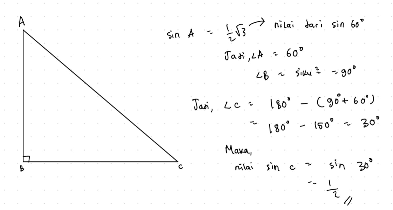 A
B
C
sin A = 1/2 √3 → nilai dari sin 60°
Jadi, ∠A = 60°
∠B = siku² = 90°
Jadi, ∠C = 180° - (90° + 60°)
= 180° - 150° = 30°
Maka,
nilai sin c = sin 30°
= 1/2 //